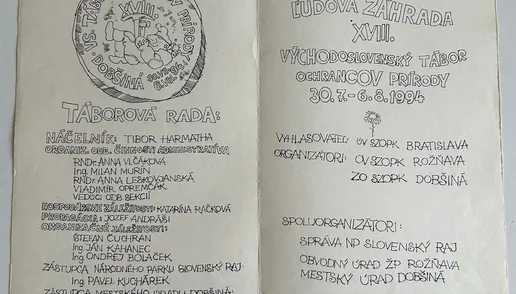 VS. TÁBOR
PRÍRODY
XVIII.
DOBŠINÁ
TÁBOROVÁ RADA:
NÁČELNÍK: TIBOR HARMATHA
ORGANIZ. ODB. ČINNOSTI ADMINISTRATÍVA
RNDr. ANNA VLČÁKOVÁ
Ing. MILAN MURÍN
RNDr. ANNA LESKOVJANSKÁ
VLADIMÍR OPREMČÁK
VEDÚCI ODB. SEKCIÍ
HOSPODÁRSKE ZÁLEŽITOSTI: KATARÍNA RAČKOVÁ
PROPAGÁCIA: JOZEF ANDRÁŠI
ORGANIZAČNÉ ZÁLEŽITOSTI:
ŠTEFAN ČUCHRAN
Ing. JÁN KAHANEC
Ing. ONDREJ BOLAČEK
ZÁSTUPCA NÁRODNÉHO PARKU SLOVENSKÝ RAJ:
Ing. PAVEL KUCHÁREK
ZÁSTUPCA MESTSKÉHO ÚRADU DOBŠINÁ:
ĽUDOVÁ ZÁHRADA
XVIII.
VÝCHODOSLOVENSKÝ TÁBOR
OCHRANCOV PRÍRODY
30.7.-6.8.1994
VYHLASOVATEĽ: ÚV SZOPK BRATISLAVA
ORGANIZÁTORI: OV SZOPK ROŽŇAVA
ZO SZOPK DOBŠINÁ
SPOLUORGANIZÁTORI:
SPRÁVA NP SLOVENSKÝ RAJ
OBVODNÝ ÚRAD ŽP ROŽŇAVA
MESTSKÝ ÚRAD DOBŠINÁ